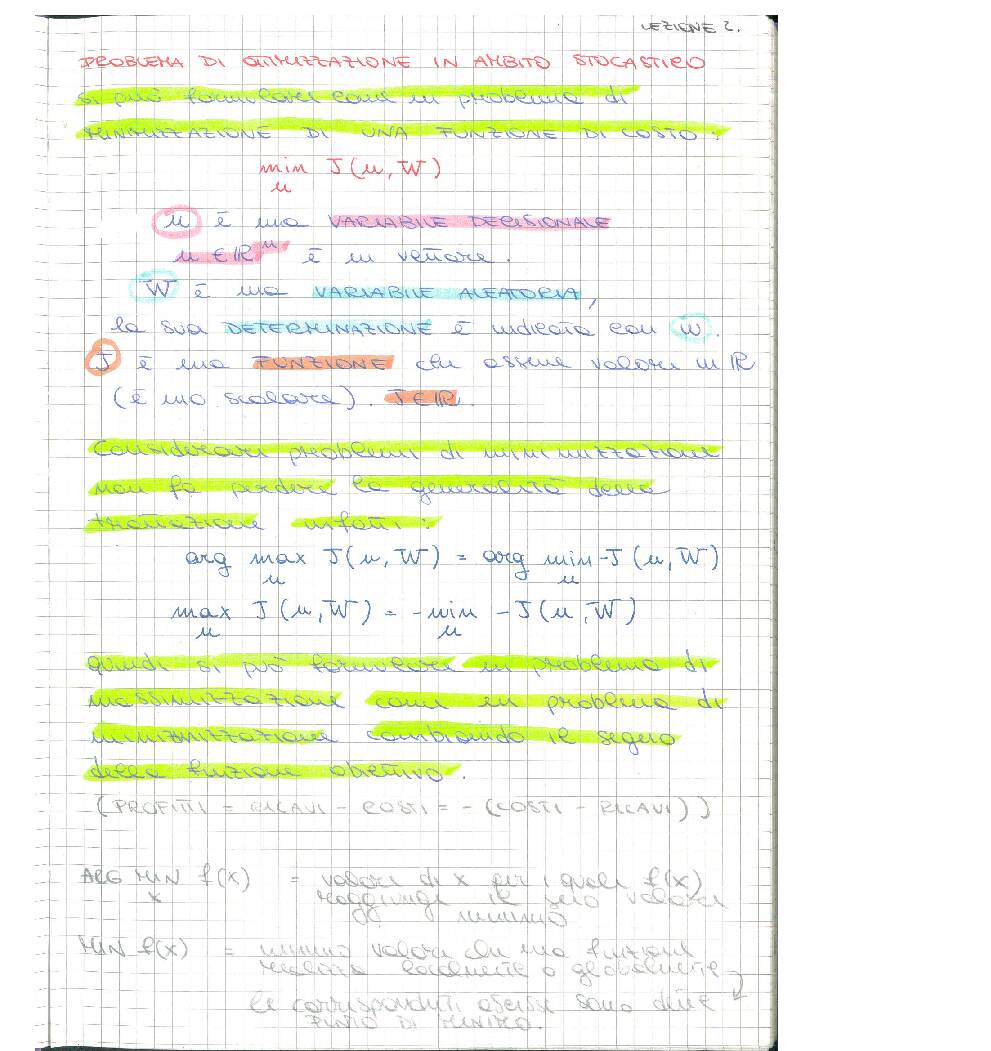 LEZIONE 2.
PROBLEMA DI OTTIMIZZAZIONE IN AMBITO STOCASTICO
si può formulare come un problema di
MINIMIZZAZIONE DI UNA FUNZIONE DI COSTO:
min J(u, W)
u
u è una VARIABILE DECISIONALE
u ∈ ℝⁿ è un vettore.
W è una VARIABILE ALEATORIA,
la sua DETERMINAZIONE è indicata con w.
J è una FUNZIONE che assume valori in ℝ
(è uno scalare). J∈ℝ.
Considerare problemi di minimizzazione
non fa perdere la generalità della
trattazione infatti:
arg max J(u, W) = arg min -J(u, W)
u u
max J(u, W) = -min -J(u, W)
u u
quindi si può formulare un problema di
massimizzazione come un problema di
minimizzazione cambiando il segno
della funzione obiettivo.
(PROFITTI = RICAVI - COSTI = - (COSTI - RICAVI))
ARG MIN f(x) = valore di x per i quali f(x)
x raggiunge il suo valore
minimo
MIN f(x) = minimo valore che una funzione
realizza localmente o globalmente
le corrispondenti ascisse sono dette
PUNTO DI MINIMO.